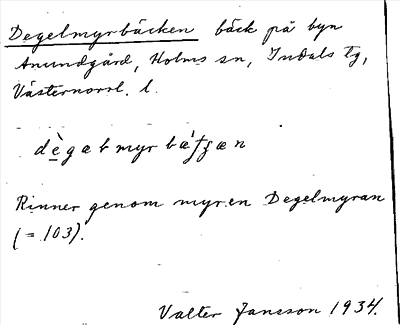 Degelmyrbäcken bäck på byn
Anundgård, Holms sn, Indals tg,
Västernorrl. l.
dègæbmyrbæ'tʃæn
Rinner genom myren Degelmyran
(= 103).
Valter Jansson 1934.